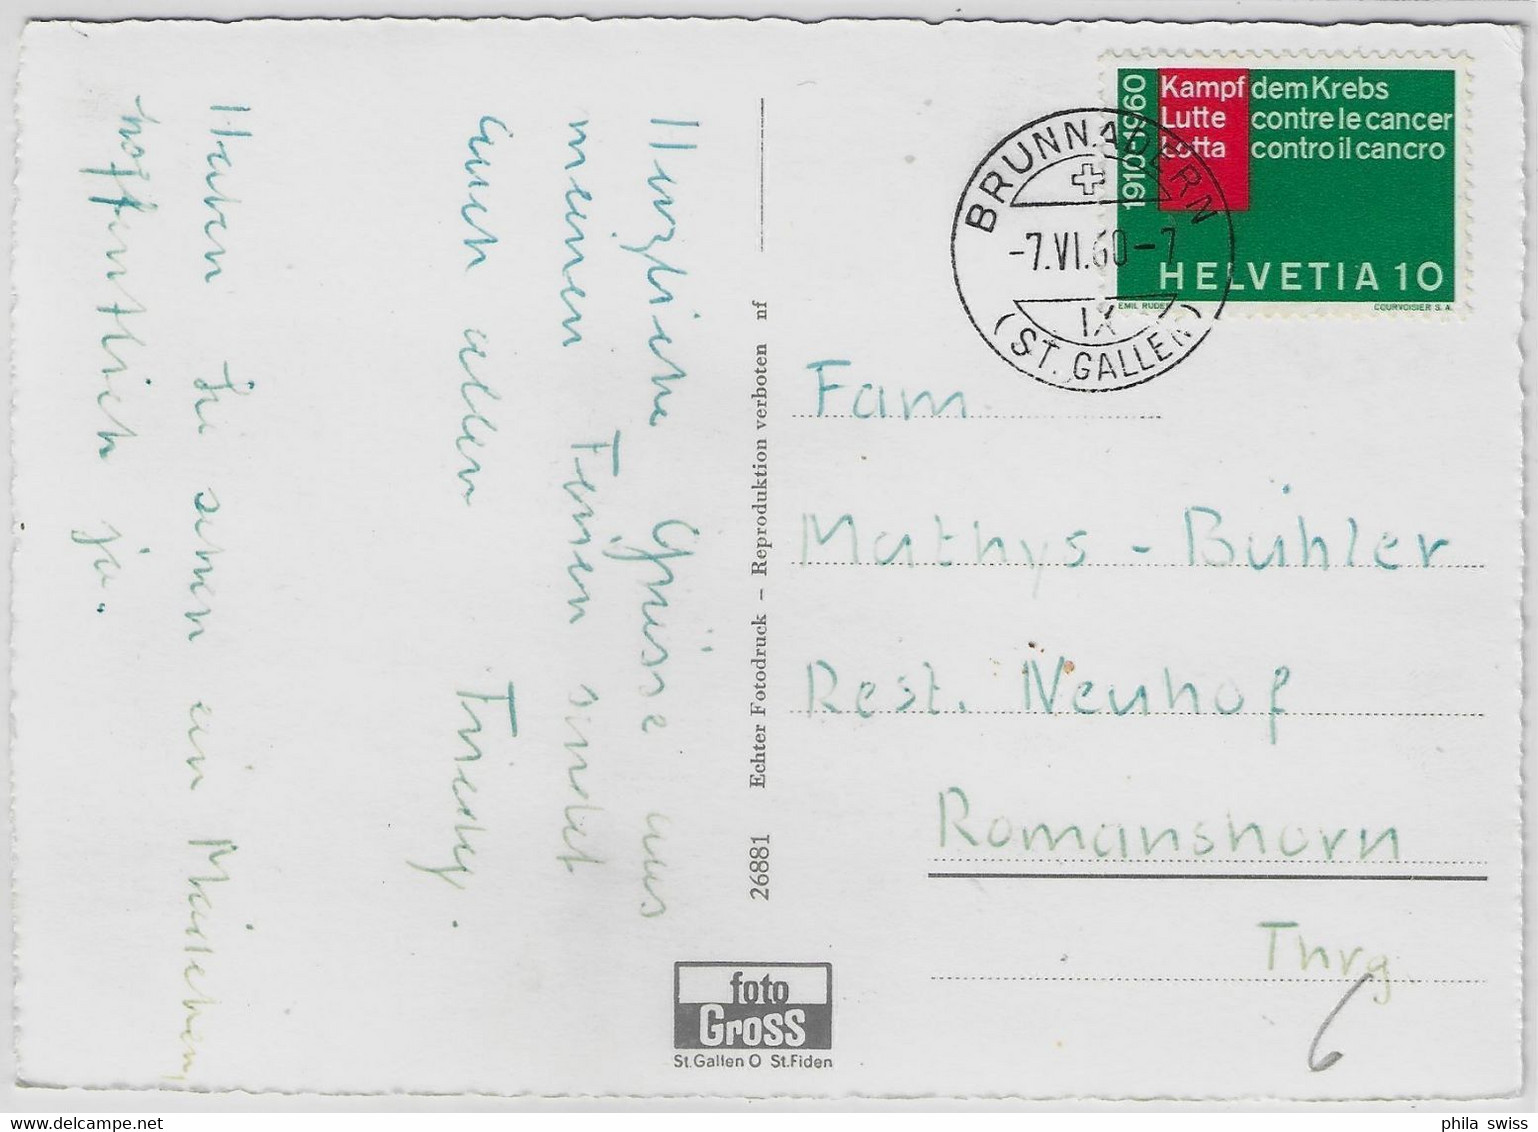 Herzliche Grüsse aus
meinen Ferien sindet
auch allen Friedy.
Haben Sie schon ein Maitschen,
hoffentlich ja.
26881 Echter Fotodruck – Reproduktion verboten nf
foto
Gross
St.Gallen O St.Fiden
1910-1960
Kampf dem Krebs
Lutte contre le cancer
Lotta contro il cancro
HELVETIA 10
EMIL RUDER COURVOISIER S.A.
BRUNNADERN
-7.VI.60-7
IX
(ST. GALLEN)
Fam.
Mathys - Bühler
Rest. Neuhof
Romanshorn
Thrg.
6
phila swiss